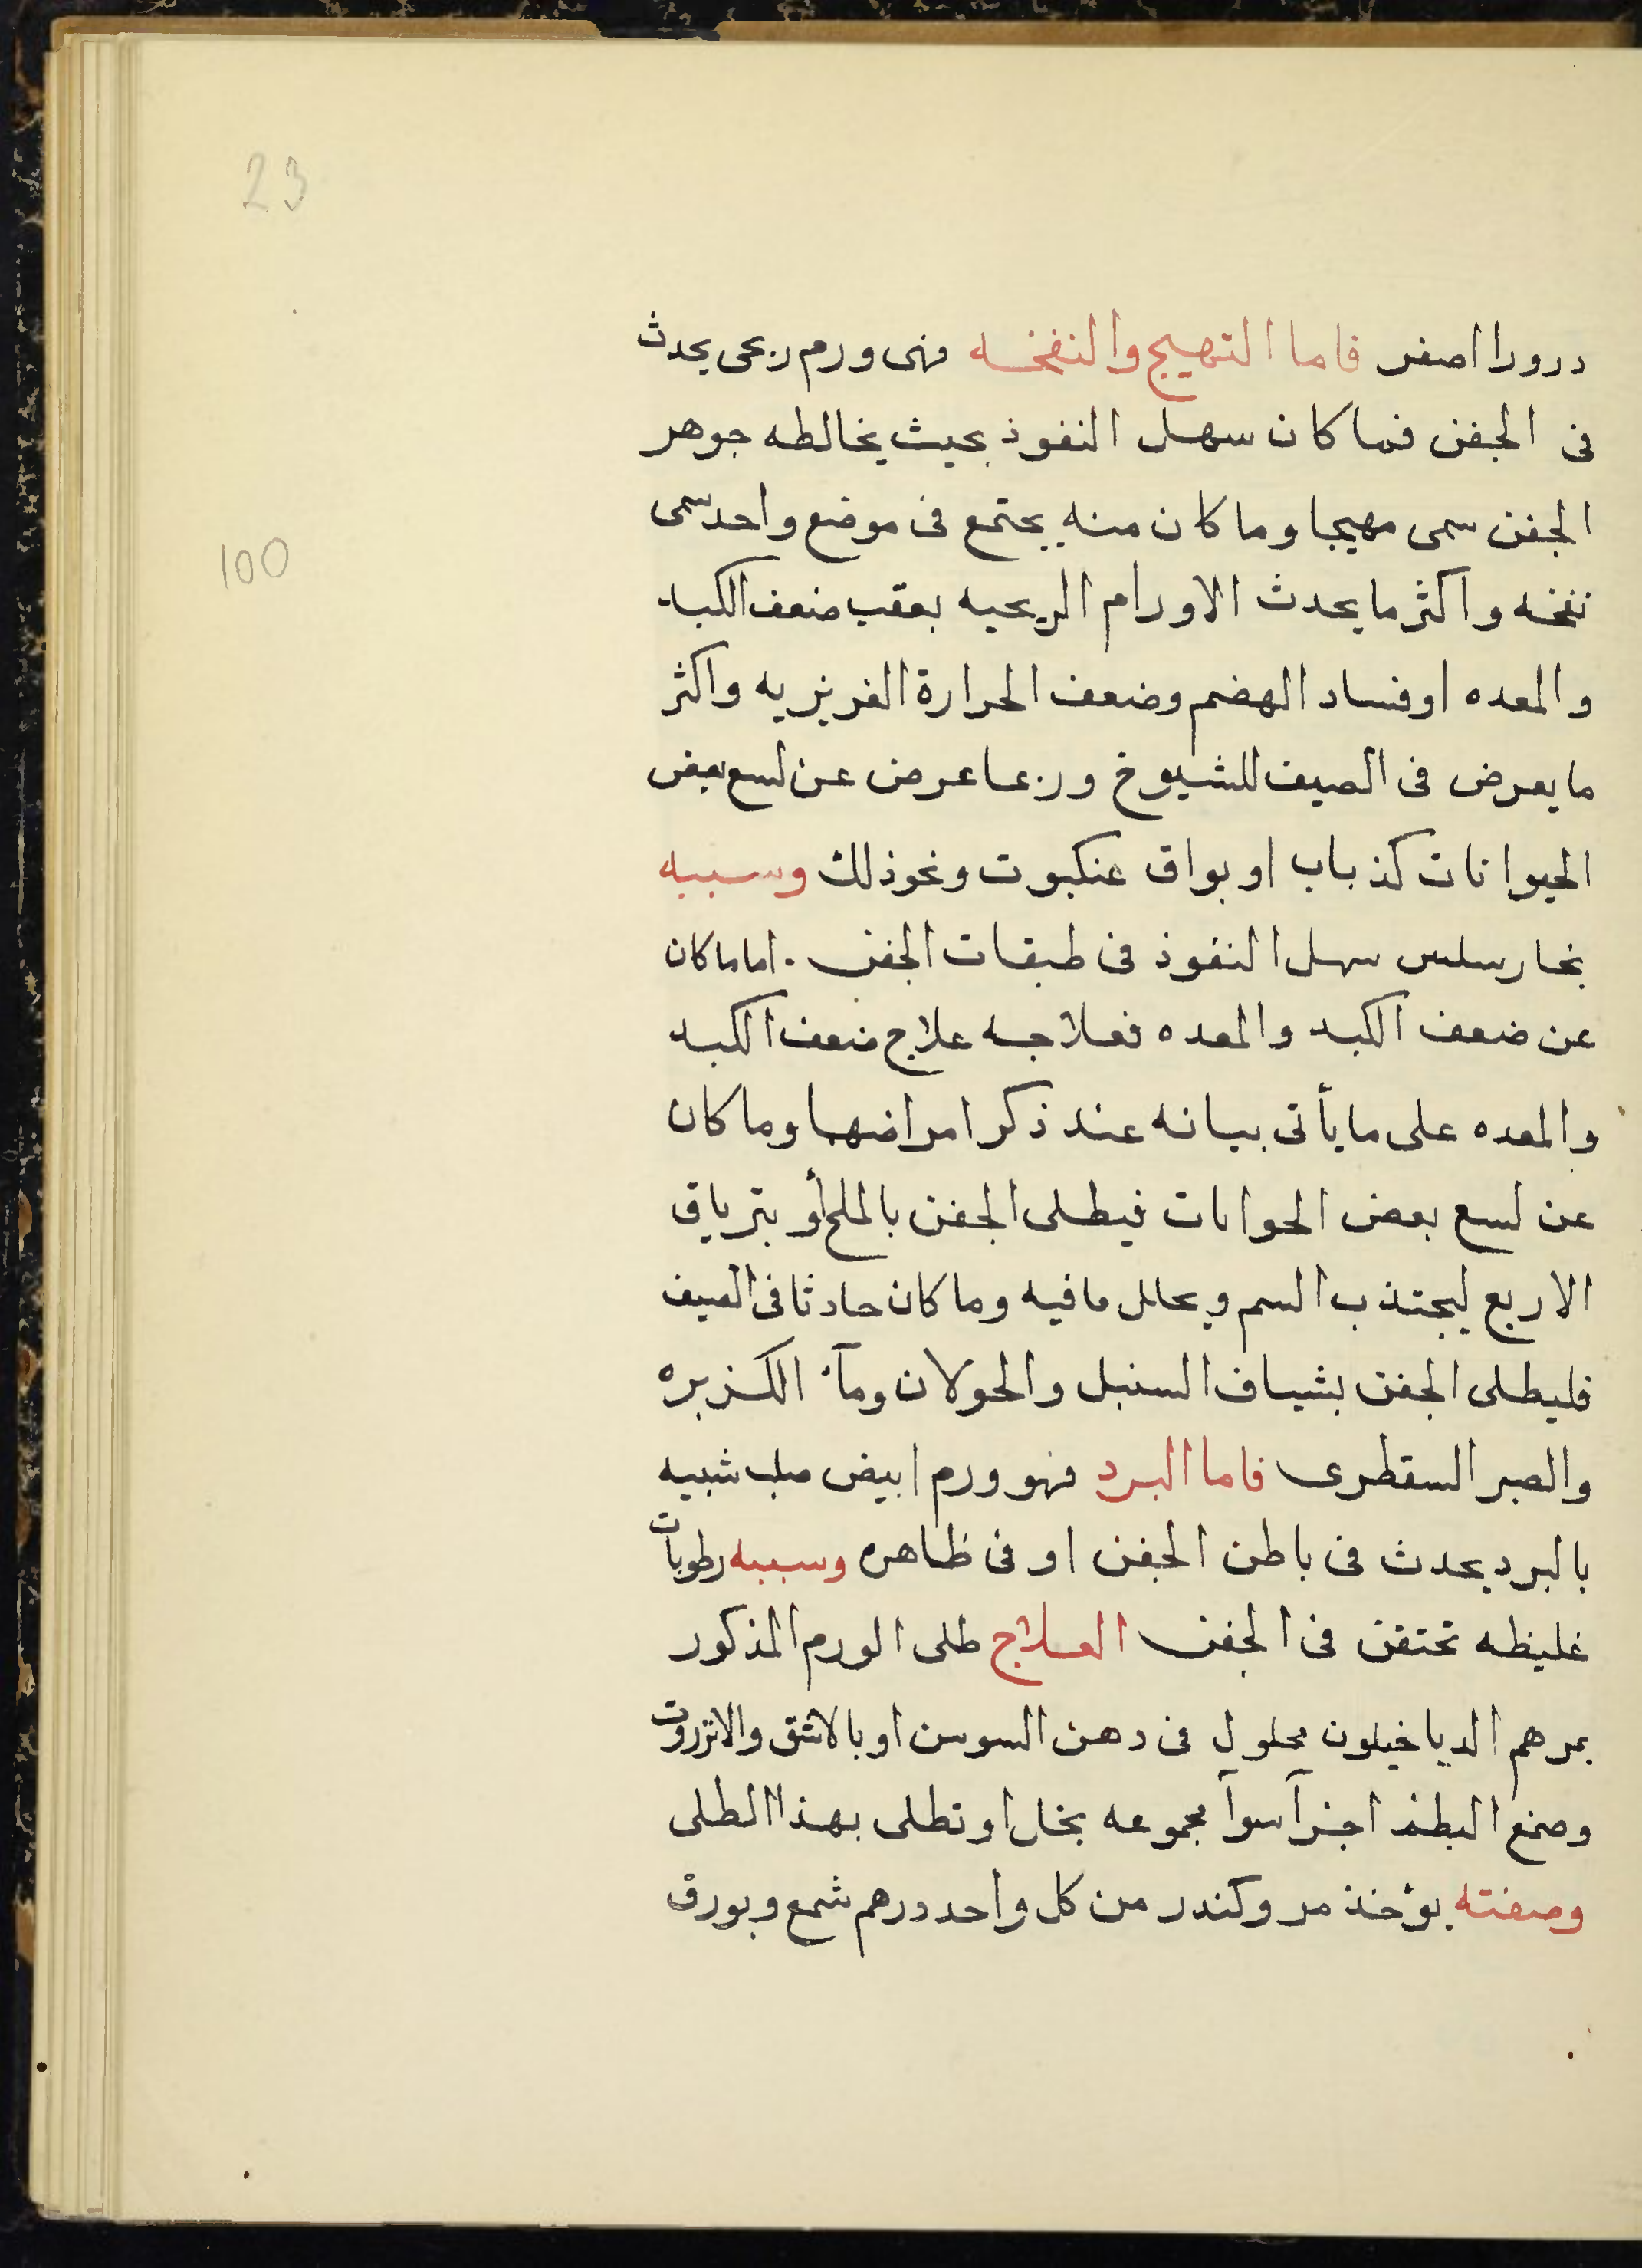 23
درورا اصفر فاما التهيج والنفخه فهى ورم ريحى يحدث
فى الجفن فما كان سهل النفوذ بحيث يخالطه جوهر
الجفن سمى مهيجا وما كان منه يجتمع فى موضع واحد سمى
100
نفخه واكثر ما يحدث الاورام الريحيه بعقب ضعف الكبد
والمعده او فساد الهضم وضعف الحرارة الغريزيه واكثر
ما يعرض فى الصيف للشيوخ وربما عرض عن لسع بعض
الحيوانات كذباب او بواق عنكبوت ونحو ذلك وسببه
بخار سلس سهل النفوذ فى طبقات الجفن . اما ما كان
عن ضعف الكبد والمعده فعلاجه علاج ضعف الكبد
والمعده على ما يأتى بيانه عند ذكر امراضهما وما كان
عن لسع بعض الحوانات فيطلى الجفن بالملح أو بترياق
الاربع ليجتذب السم ويحلل ما فيه وما كان حادثا فى الصيف
فليطلى الجفن بشياف السنبل والحولان ومآء الكزبره
والصبر السقطرى فاما البرد فهو ورم ابيض صلب شبيه
بالبرد يحدث فى باطن الجفن او فى ظاهره وسببه رطوبات
غليظه تحتقن فى الجفن العلاج طلى الورم المذكور
بمرهم الدياخيلون محلول فى دهن السوسن او بالاشق والانزروت
وصمغ البطم اجزآ سوآ مجموعه بخل او تطلى بهذا الطلى
وصفته يؤخذ مر وكندر من كل واحد درهم شمع وبورق